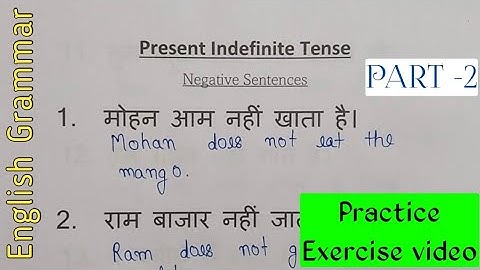 English Grammar
Present Indefinite Tense
PART -2
Negative Sentences
1. मोहन आम नहीं खाता है।
Mohan does not eat the
mango.
2. राम बाजार नहीं
Ram does not
Practice
Exercise video